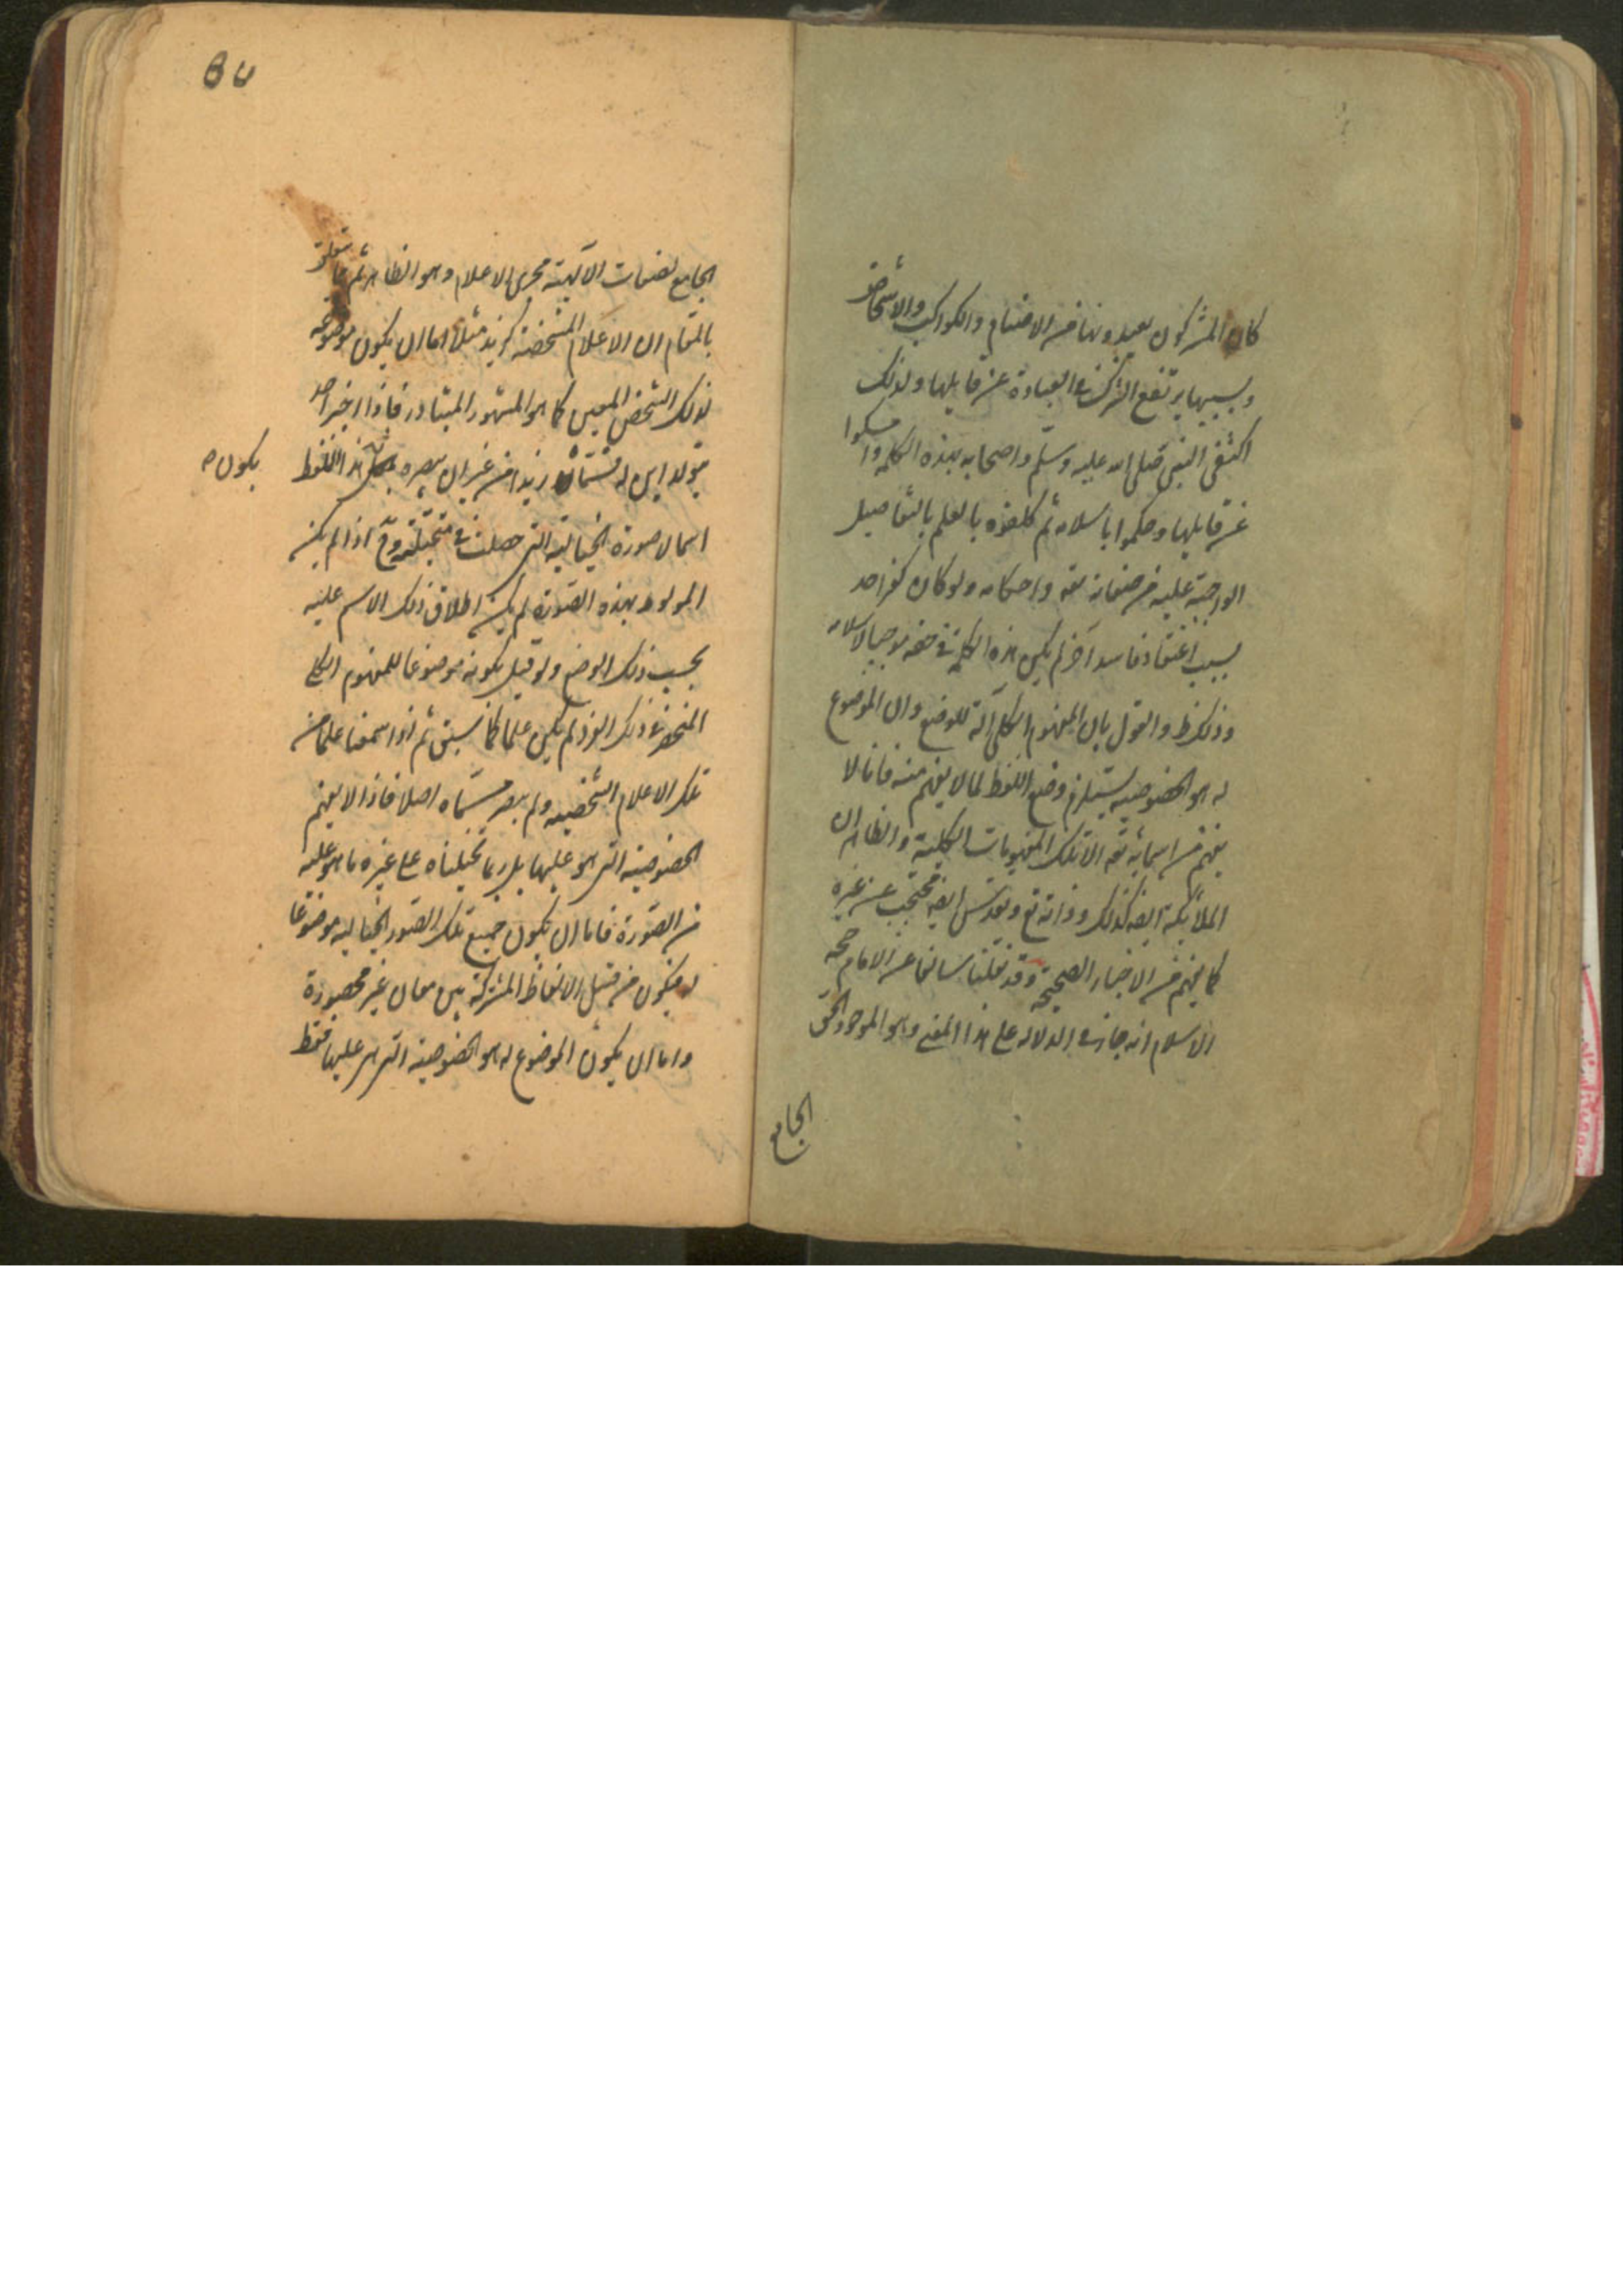 كان المشركون يعبدونها من الاصنام والكواكب والاشخاص
وبسببها يرتفع الشرك في العبادة عن قايلها ولذلك
اكتفى النبي صلى الله عليه وسلم واصحابه بهذه الكلمة وامسكوا
عن قايلها وحكموا باسلامه ثم كلفوه بالعلم بالتفاصيل
الواجبة عليه من صفاته تعه واحكامه ولو كان كفر احد
بسبب اعتقاد فاسد آخر لم يكن هذه الكلمة في حقه موجبا لاسلامه
وذلك ظ والقول بان المفهوم الكلى آلة للوضع وان الموضوع
له هو الخصوصية يستلزم وضع اللفظ لما لا يفهم منه فانا لا
نفهم من اسمائه تعه الا تلك المفهومات الكلية والظاهر ان
الملائكة ايضه كذلك وذاته تع وتقدس ايضه محتجب عن غيره
كما يفهم من الاخبار الصحيحة وقد نقلنا سالفا عن الامام حجة
الاسلام انه جازه الدلاله على هذا المعنى وهو الموجود الحق
الجامع
الجامع لصفات الآلهية مجرى الاعلام وهو الظاهر ثم مما يتعلق
بالمقام ان الاعلام المشخصة كزيد مثلا اما ان يكون موضوعه
لذلك الشخص المعين كما هو المشهور المتبادر فاذا اخبر احد
بتولد ابن له فسماه زيدا من غير ان يبصره هذا اللفظ
يكون ص
اسما لصورة الخيالية التى حصلت في متخيلته وح اذا لم يكن
المولود بهذه الصورة لم يكن اطلاق ذلك الاسم عليه
بحسب ذلك الوضع ولو قيل بكونه موضوعا للمفهوم الكلى
المنحصر في ذلك الفرد لم يكن علما كما سبق ثم اذا سمعنا علما من
تلك الاعلام الشخصيه ولم يبصر مسماه اصلا فاذا لا يفهم
الخصوصية التى هو عليها بل ربما تخيلناه على غيره ما هو عليه
من الصورة فاما ان يكون جميع تلك الصور الخياليه موضوعا
له فيكون من قبيل الالفاظ المشتركة بين معان غير محصورة
واما ان يكون الموضوع له هو الخصوصية التى هو عليها فقط